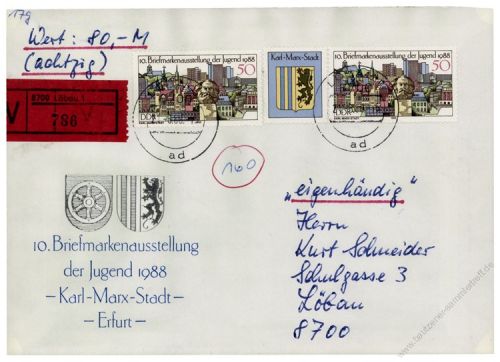 17g
Wert: 80,-M
(achtzig)
8700 Löbau 1
V 786
10. Briefmarkenausstellung der Jugend 1988
50
DDR
Karl-Marx-Stadt
10. Briefmarkenausstellung der Jugend 1988
50
DDR
ad
ad
160
10. Briefmarkenausstellung
der Jugend 1988
– Karl-Marx-Stadt –
– Erfurt –
„eigenhändig“
Herrn
Kurt Schneider
Schulgasse 3
Löbau
8700